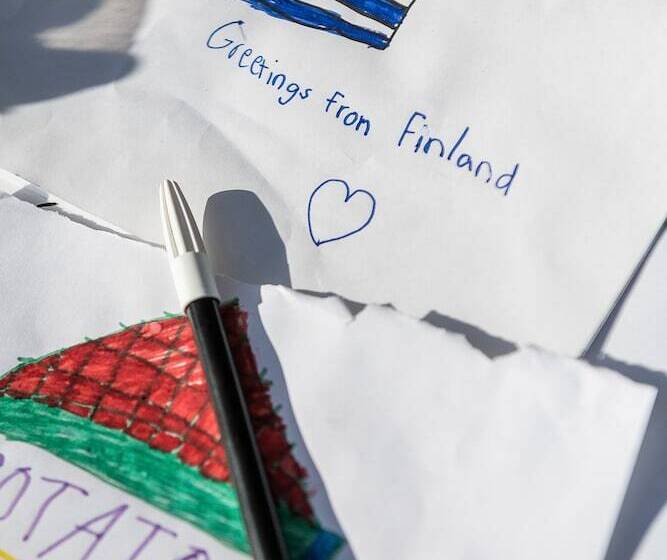 Greetings from Finland
OTATO